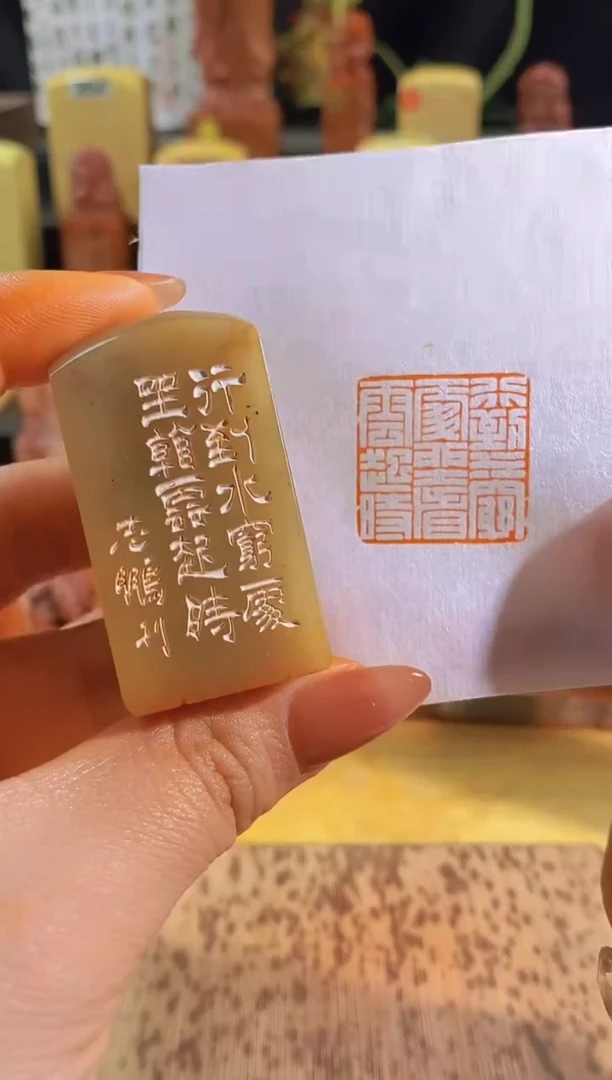 行到水窮處
坐看雲起時
志鵬刊
行到水窮
處坐看
雲起時